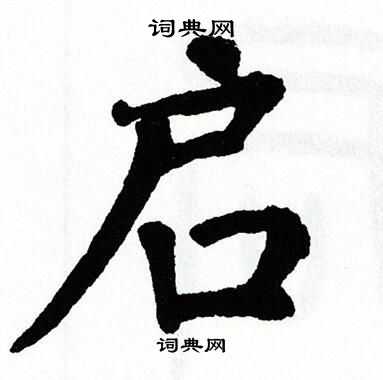 词典网
启
词典网